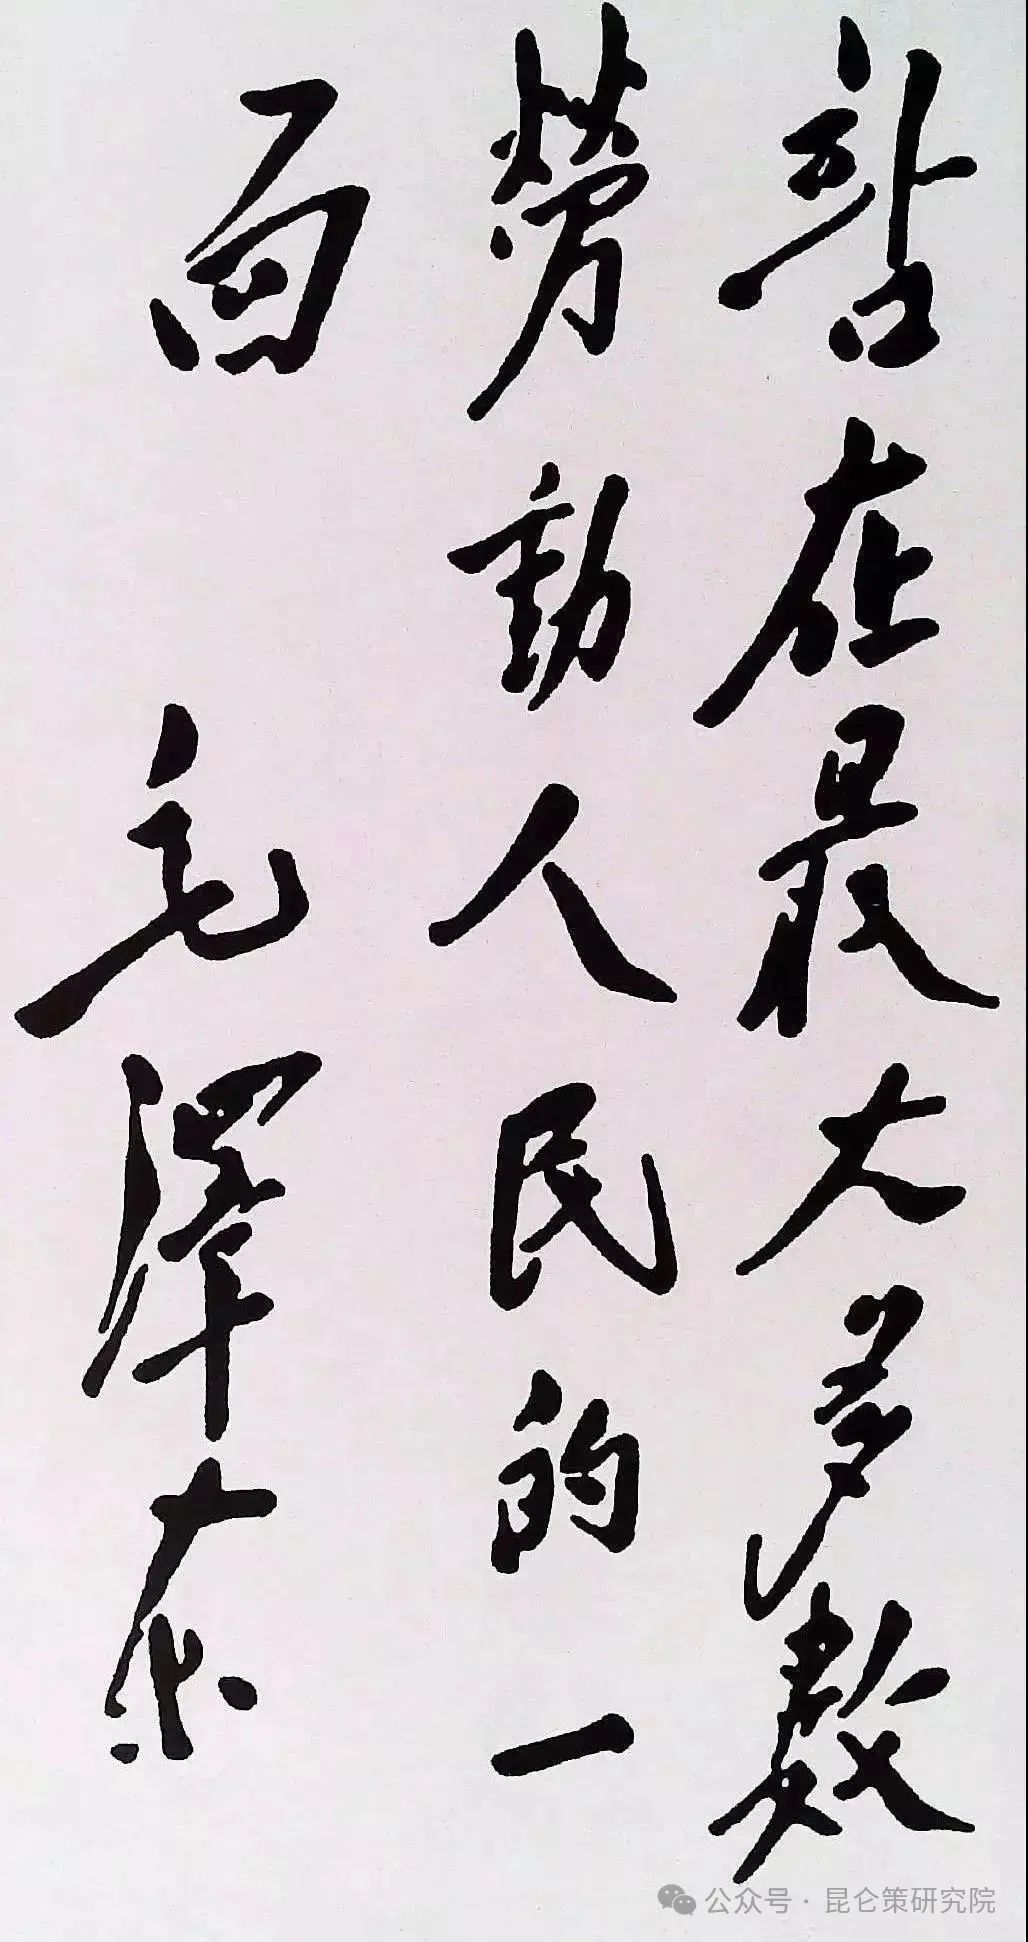 站在最大多数
劳動人民的一
面
毛澤东
公众号·昆仑策研究院